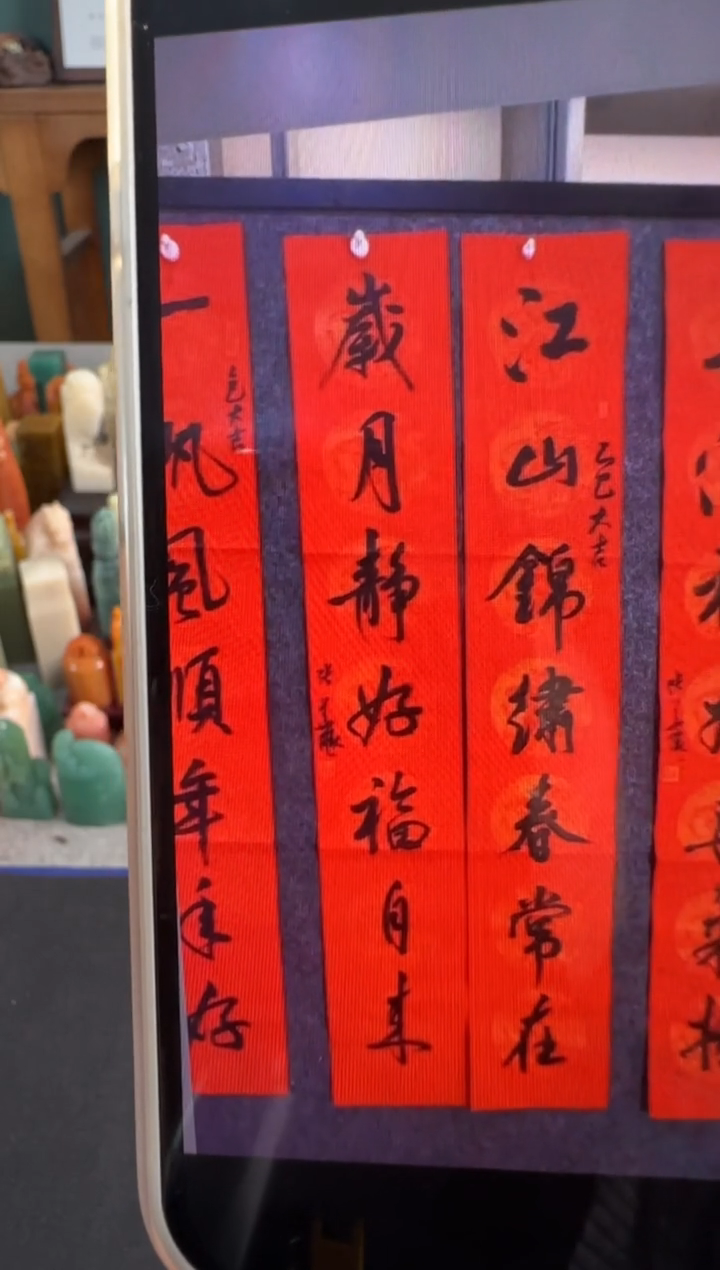 江山錦繡春常在
乙巳大吉
歲月靜好福自来
一帆風順年年好
乙巳大吉